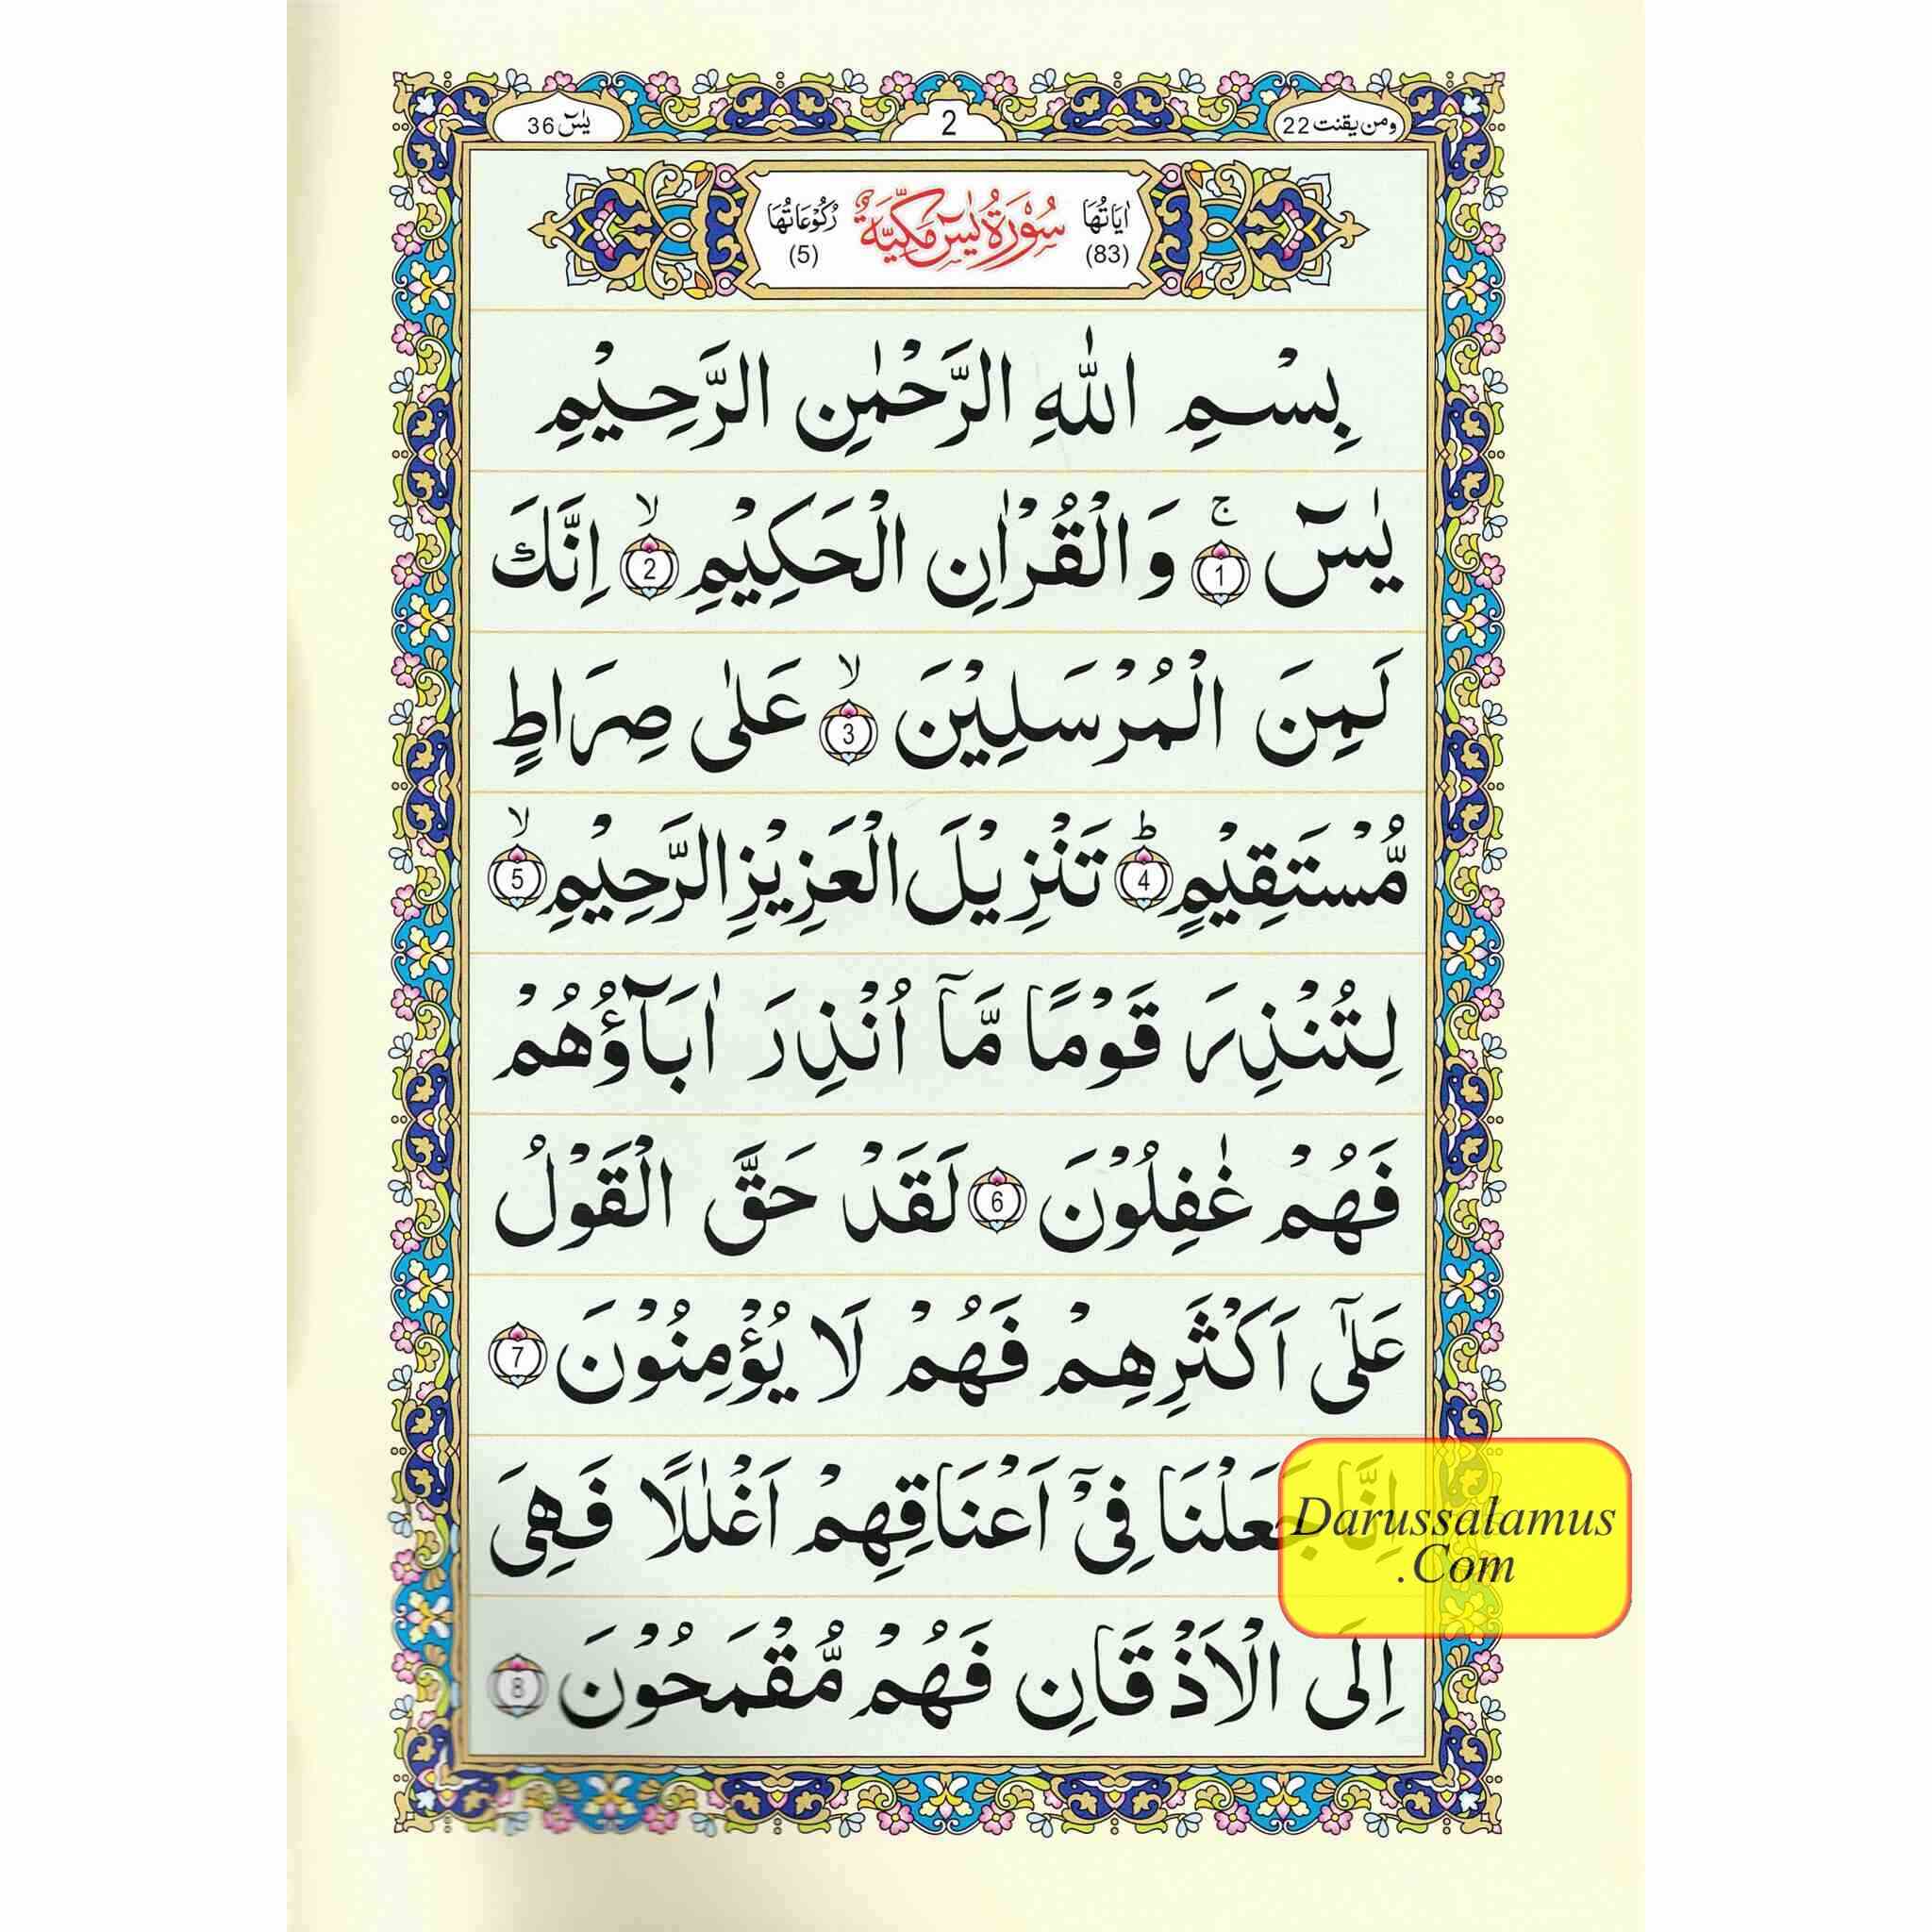 ومن يقنت 22
2
يٰسٓ 36
اٰيَاتُهَا (83)
سُوْرَةُ يٰسٓ مَكِّيَّةٌ
رُكُوْعَاتُهَا (5)
بِسْمِ اللّٰهِ الرَّحْمٰنِ الرَّحِيْمِ
يٰسٓ ۚ 1 وَالْقُرْاٰنِ الْحَكِيْمِ ۙ 2 اِنَّكَ
لَمِنَ الْمُرْسَلِيْنَ ۙ 3 عَلٰى صِرَاطٍ
مُّسْتَقِيْمٍ ؕ 4 تَنْزِيْلَ الْعَزِيْزِ الرَّحِيْمِ ۙ 5
لِتُنْذِرَ قَوْمًا مَّاۤ اُنْذِرَ اٰبَآؤُهُمْ
فَهُمْ غٰفِلُوْنَ 6 لَقَدْ حَقَّ الْقَوْلُ
عَلٰٓى اَكْثَرِهِمْ فَهُمْ لَا يُؤْمِنُوْنَ 7
اِنَّا جَعَلْنَا فِىْۤ اَعْنَاقِهِمْ اَغْلٰلًا فَهِىَ
اِلَى الْاَذْقَانِ فَهُمْ مُّقْمَحُوْنَ 8
Darussalamus
.Com